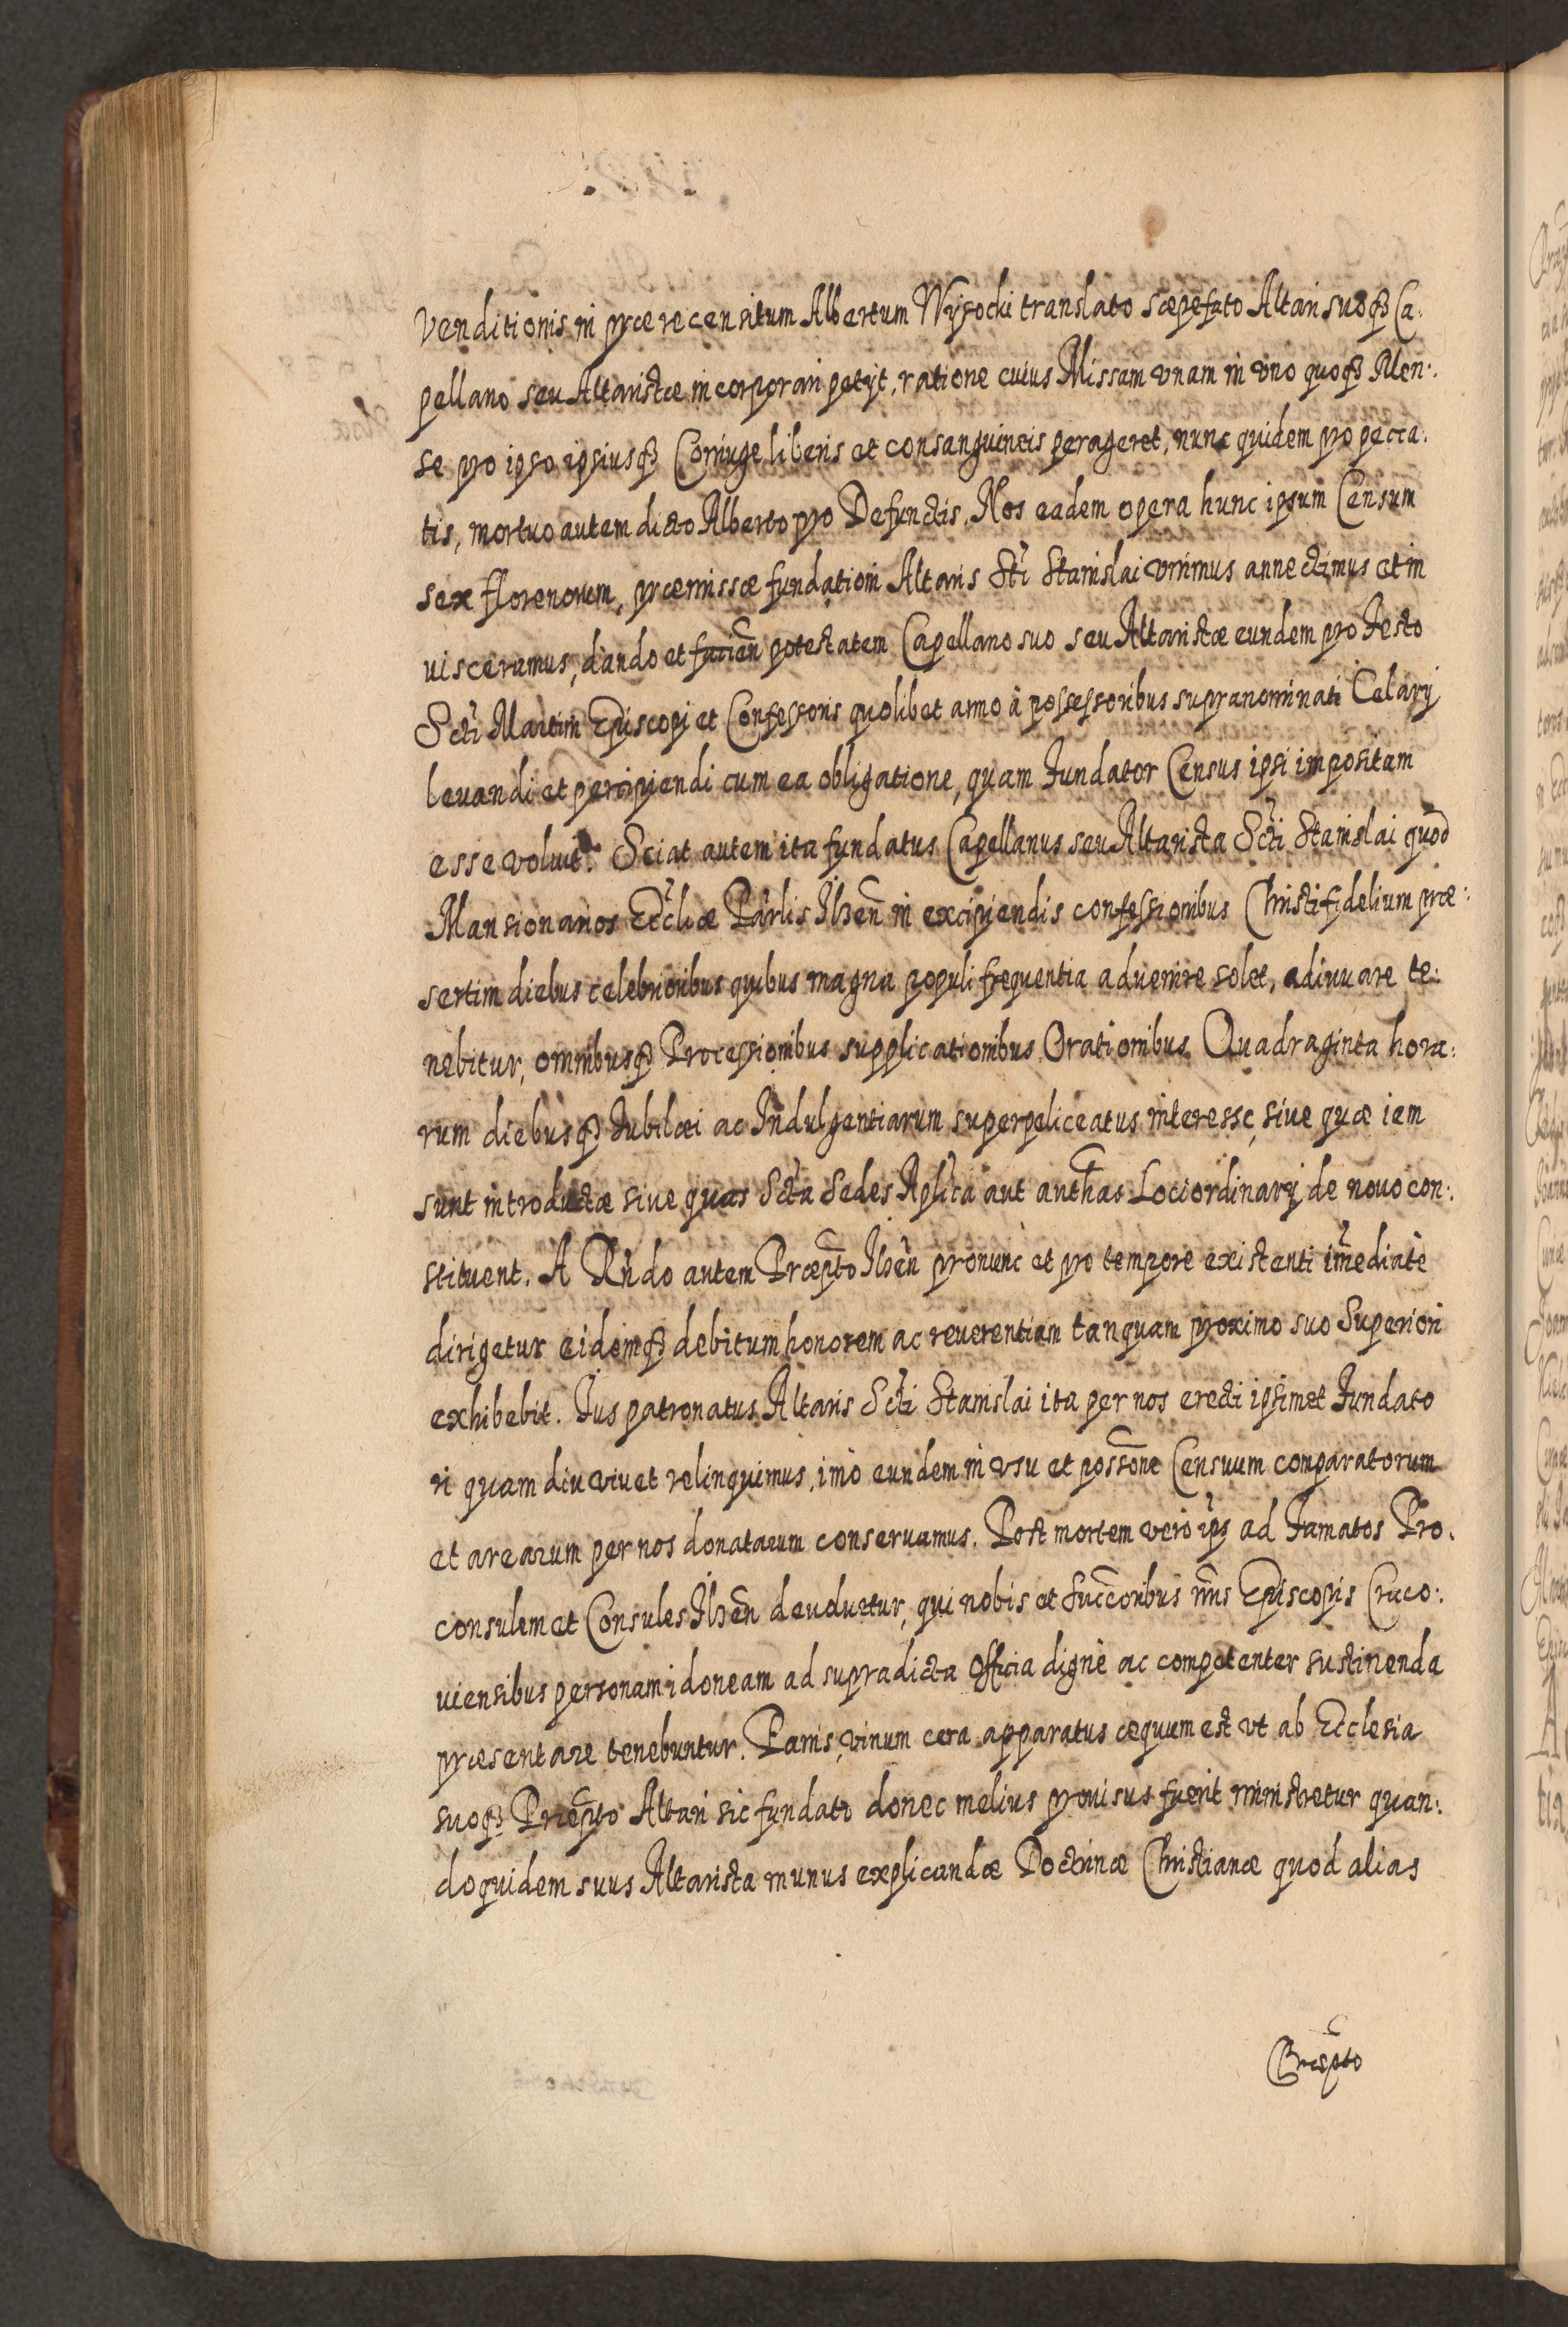 Venditionis in præ recensitum Albertum Wysocki translato sæpefato Altari suoqȝ Ca:
pellano seu Altaristæ incorporari petijt, ratione cuius Missam vnam in vno quoqȝ Men:
se pro ipso ipsiusqȝ Coniuge liberis et consanguineis perageret, nunc quidem pro pecca:
tis, mortuo autem dicto Alberto pro Defunctis. Nos eadem opera hunc ipsum Censum
sex florenorum, præmissæ fundationi Altaris Sti Stanislai vnimus annectimus et in
uisceramus, dando et facien potestatem Capellano suo seu Altaristæ eundem pro Festo
Scti Martini Episcopi et Confessoris quolibet anno à possessoribus supranominati Celarij
leuandi et percipiendi cum ea obligatione, quam Fundator Census ipsi impositam
esse voluit. Sciat autem ita fundatus Capellanus seu Altarista Scti Stanislai quod
Mansionarios Eccliæ Parlis Ilzen in excipiendis confessionibus Christifidelium præ:
sertim diebus celebrioribus quibus magna populi frequentia aduenire solet, adiuuare te:
nebitur, omnibusqȝ Processionibus supplicationibus Orationibus Quadraginta hora:
rum diebusqȝ Iubilæi ac Indulgentiarum superpeliceatus interesse, siue quæ iam
sunt introductæ siue quas Scta Sedes Aplica aut anthas Lociordinarij de nouo con:
stituent. A Rndo autem Præpto Ilzen pronunc et pro tempore existenti imediatè
dirigetur eidemqȝ debitum honorem ac reuerentiam tanquam proximo suo Superiori
exhibebit. Ius patronatus Altaris Scti Stanislai ita per nos erecti ipsimet Fundato
ri quam diu viuet relinquimus, imò eundem in vsu et possone Censuum comparatorum
et arearum per nos donatarum conseruamus. Post mortem verò ips ad Famatos Pro.
consulem et Consules Ilzen deuoluetur, qui nobis et succoribus nris Episcopis Craco:
uiensibus personam idoneam ad supradicta Officia dignè ac competenter sustinenda
præsentare tenebuntur. Panis, vinum cera apparatus æquum est vt ab Ecclesia
suoqȝ Præpto Altari sic fundato donec melius prouisus fuerit ministretur quan:
doquidem suus Altarista munus explicandæ Doctrinæ Christianæ quod alias
Præpto